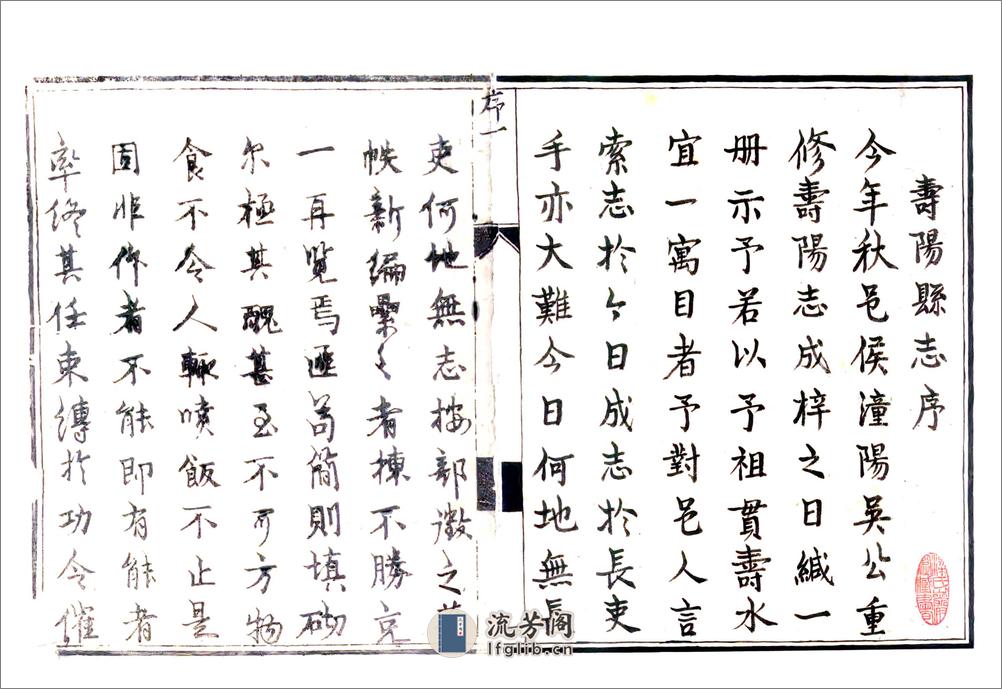 壽陽縣志序
今年秋邑侯潼陽吳公重
修壽陽志成梓之日緘一
册示予若以予祖貫壽水
宜一寓目者予對邑人言
索志於今日成志於長吏
手亦大難今日何地無長
序一
吏何地無志按部徵之
帙新編纍〻者棟不勝充
一再覽焉匪苟簡則填砌
尔極其醜甚至不可方物
食不令人輒噴飯不止是
固非作者不能即有能者
率終其任束縛於功令催
流芳阁
lfglib.cn